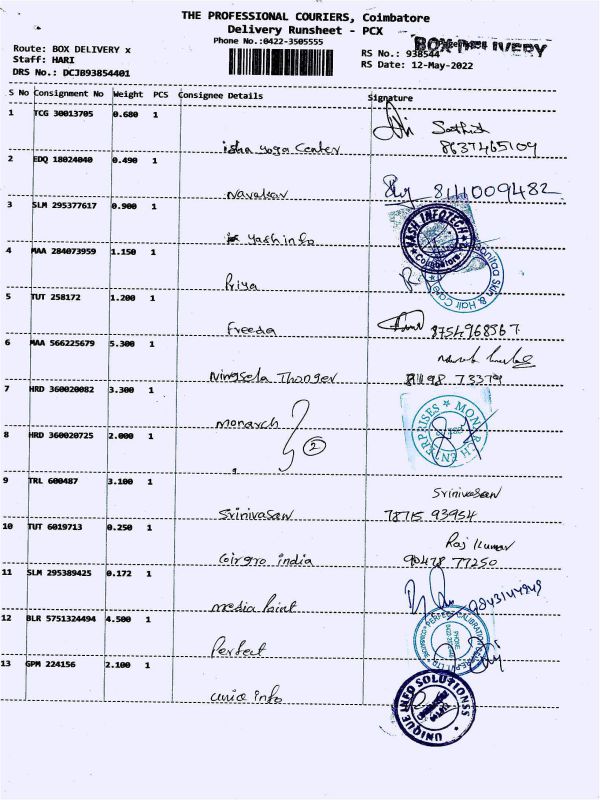 THE PROFESSIONAL COURIERS, Coimbatore
Delivery Runsheet - PCX
Phone No.:0422-3505555
BOX DELIVERY
Route: BOX DELIVERY x
RS No.: 938544
Staff: HARI
RS Date: 12-May-2022
DRS No.: DCJB93854401
S No Consignment No Weight PCS Consignee Details Signature
1 TCG 30013705 0.680 1
isha yoga Center 8637465109
2 EDQ 18024040 0.490 1
Navakar 8111009482
3 SLM 295377617 0.900 1
yash info
YASH INFOTECH
Coimbatore
4 MAA 284073959 1.150 1
Priya
Skin & Hair
5 TUT 258172 1.200 1
Freeda 8754968567
6 MAA 566225679 5.300 1
Ningsela Thonger 98 73379
7 HRD 360020082 3.300 1
monarch
MONARCH ENTERPRISES
8 HRD 360020725 2.000 1
2
9 TRL 600487 3.100 1
Srinivasan
Srinivasan 78715 93954
10 TUT 6019713 0.250 1
Raj Kumar
Coirgro india 90478 77250
11 SLM 295389425 0.172 1
media Point 9843144949
12 BLR 5751324494 4.500 1
Perfect
PERFECT CALIBRATION
13 GPM 224156 2.100 1
unio info
UNIQUE INFO SOLUTIONSS